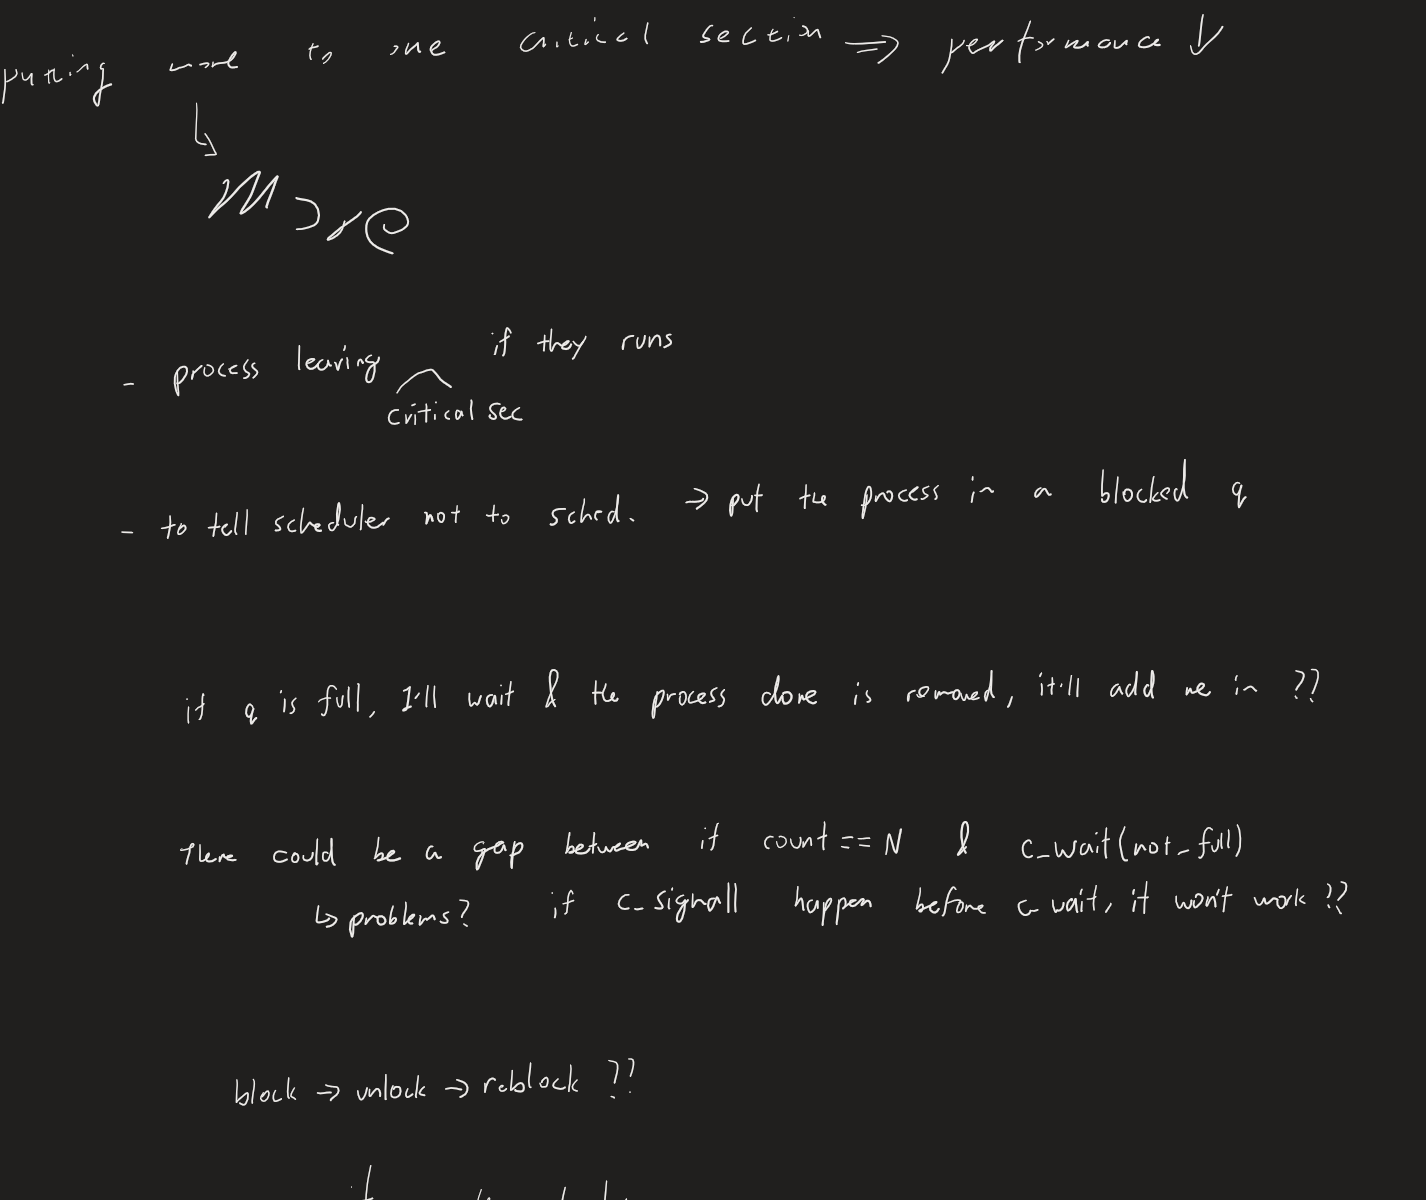 putting more to one critical section ⇒ performance ↓
↳ More
- process leaving if they runs
critical sec
- to tell scheduler not to sched. → put the process in a blocked q
if q is full, I'll wait & the process done is removed, it'll add me in ??
There could be a gap between if count == N & c_wait(not_full)
↳ problems? if c_signall happen before c_wait, it won't work ??
block → unlock → reblock ??